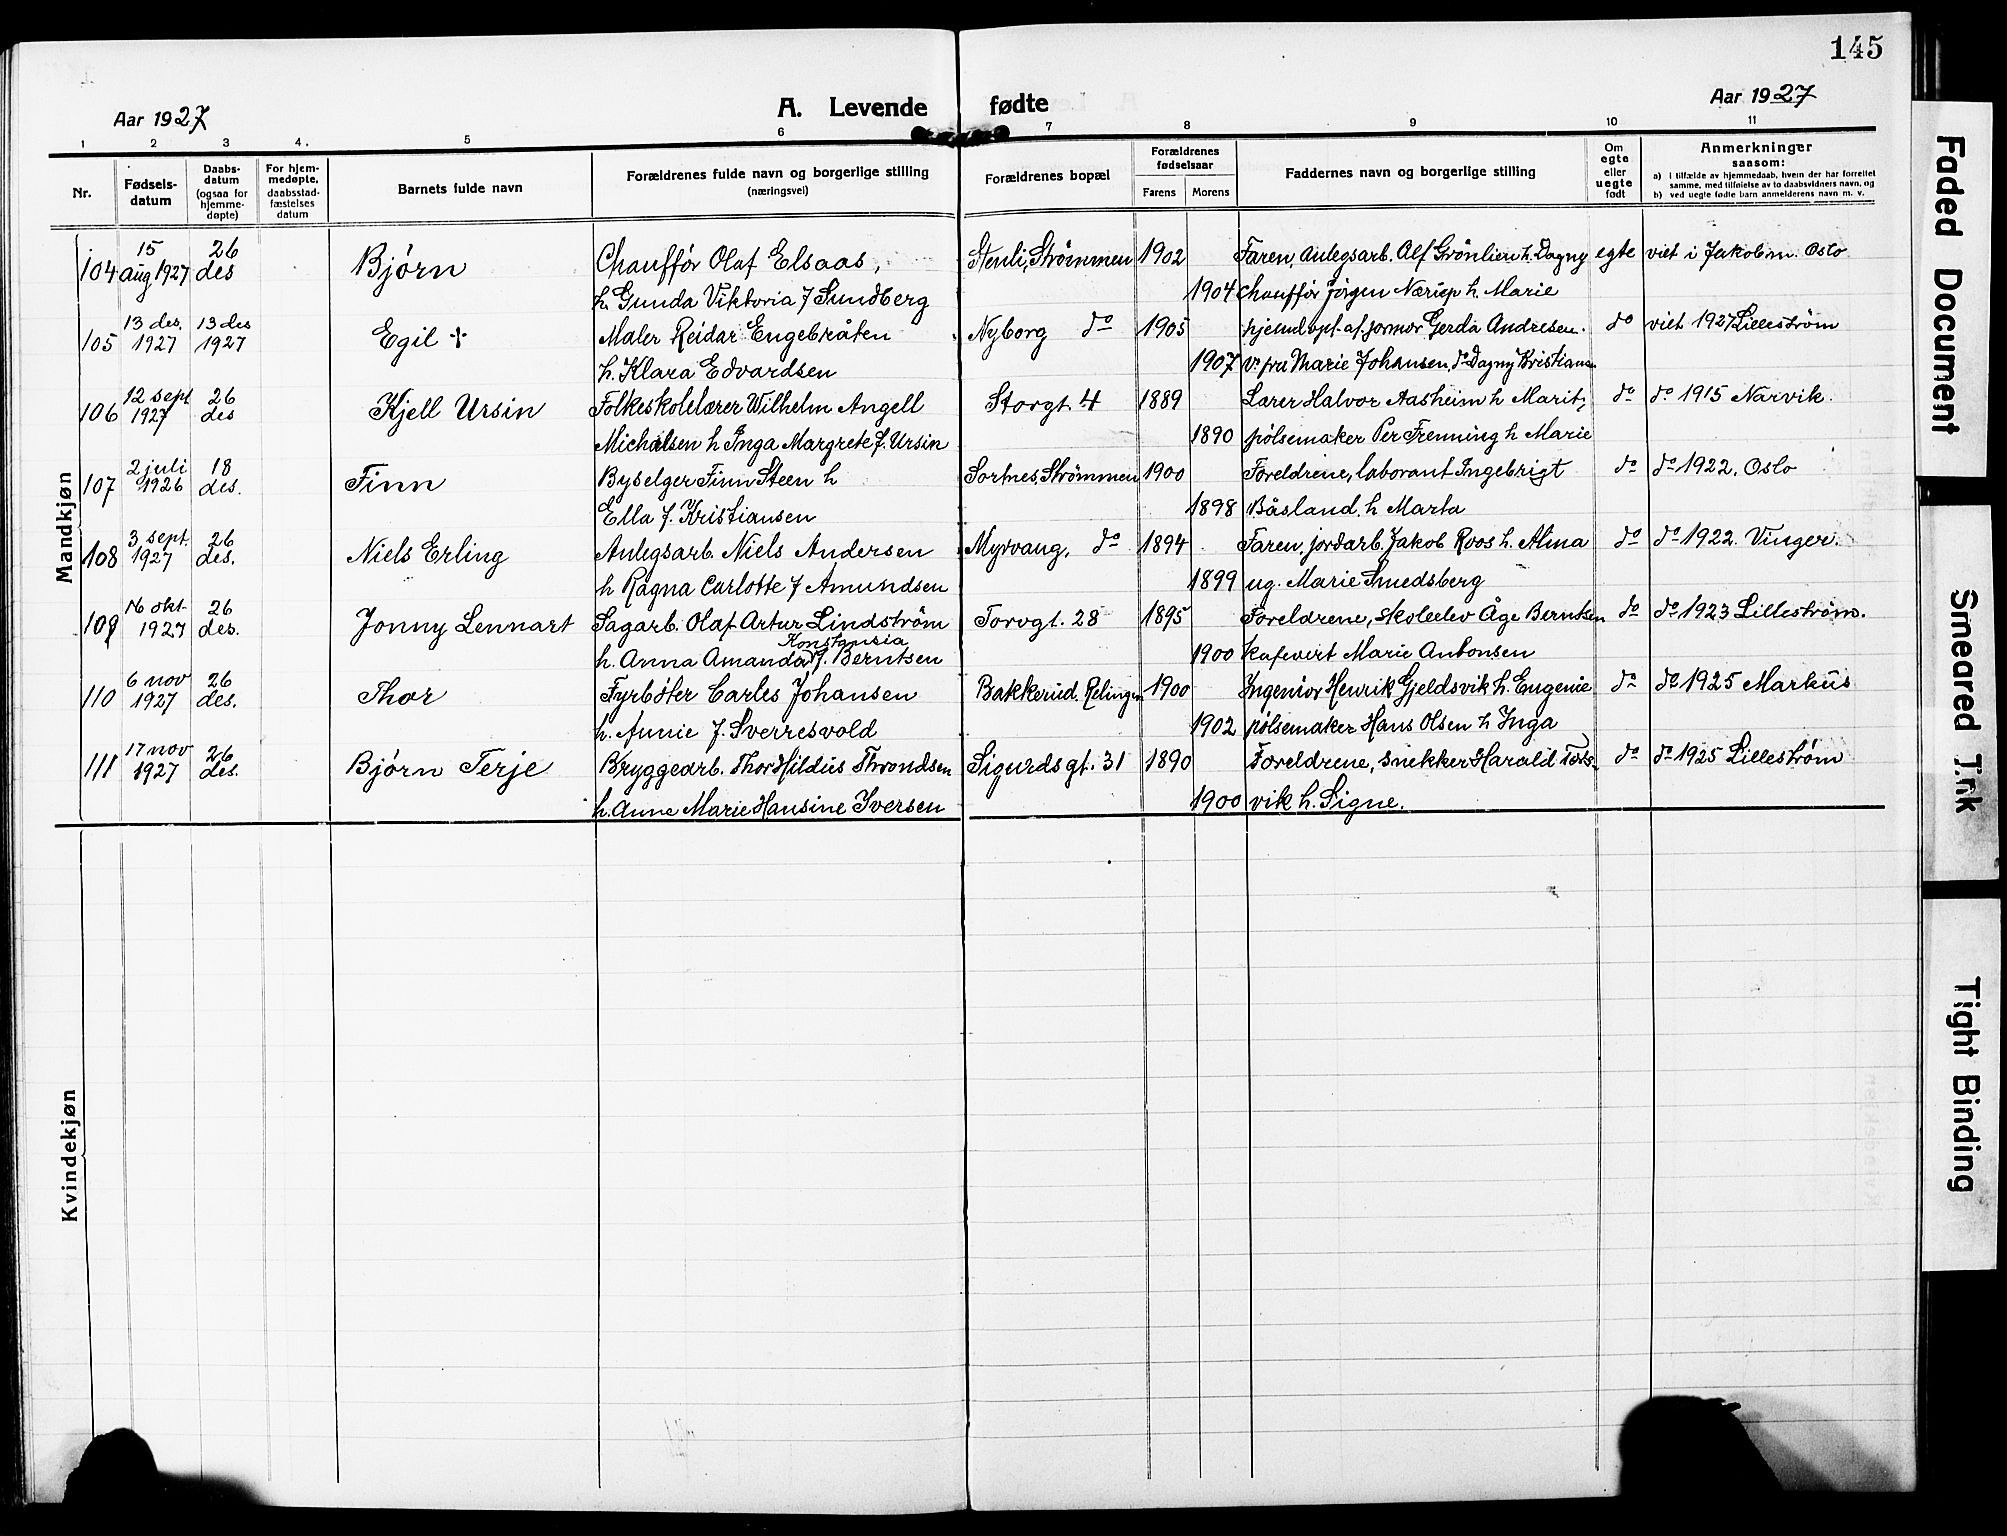 145
Aar 1927
A. Levende fødte
Aar 1927
1 2 3 4. 5 6 7 8 9 10 11
Nr.
Fødsels-
datum
Daabs-
datum
(ogsaa for
hjemme-
døpte)
For hjem-
medøpte,
daabsstad-
fæstelses
datum
Barnets fulde navn
Forældrenes fulde navn og borgerlige stilling
(næringsvei)
Forældrenes bopæl
Forældrenes
fødselsaar
Farens Morens
Faddernes navn og borgerlige stilling
Om
egte
eller
uegte
født
Anmerkninger
saasom:
a) i tilfælde av hjemmedaab, hvem der har forrettet
samme, med tilføielse av to daabsvidners navn, og
b) ved uegte fødte barn anmelderens navn m. v.
Mandkjøn
15 26
104 aug 1927 des Bjørn Chauffør Olaf Elsaas, Stenli, Strømmen 1902 Faren, Anlegsarb. Alf Grönlien h. Dagny egte viet i Jakob m. Oslo
h. Gunda Viktoria f Sundberg 1904 chauffør Jörgen Nærup h. Marie
13 des. 13 des
105 1927 1927 Egil + Maler Reidar Engebråten Nyborg do 1905 hjemdöpt af formor Gerda Andresen. do viet 1927 Lillestrøm
h. Klara Edvardsen 1907 v. fru Marie Johansen, do Dagny Kristians
12 sept 26
106 1927 des Kjell Ursin Folkeskolelærer Wilhelm Angell Storgt. 4 1889 Lærer Halvor Aasheim h Marit, do do 1915 Narvik.
Michalsen h Inga Margrete f. Ursin 1890 pølsemaker Per Frenning h Marie
2 juli 18
107 1926 des. Finn Byselger Finn Steen h Sortnes, Strømmen 1900 Foreldrene, laborant Ingebrigt do do 1922. Oslo
Ella f. Kristiansen 1898 Båsland. h Marta
3 sept. 26
108 1927 des. Niels Erling Anlegsarb. Niels Andersen Myrvang, do 1894 Faren, jordarb. Jakob Roos h. Alma do do 1922 Vinger.
h Ragna Carlotte f Amundsen 1899 ug. Marie Smedsberg
16 okt 26
109 1927 des. Jonny Lennart Sagarb. Olaf Artur Lindström Torvgt. 28 1895 Foreldrene, skoleelev Åge Berntsen do do 1923 Lillestrøm.
Konstansia
h. Anna Amanda f. Berntsen 1900 kafevert Marie Antonsen
6 nov 26
110 1927 des. Thor Fyrbøter Carles Johansen Bakkerud. Relingen 1900 Ingeniør Henrik Gjeldsvik h. Eugenie do do 1925 Markus
h. Annie f. Sverresvold 1902 pølsemaker Hans Olsen h Inga
17 nov 26
111 1927 des. Bjørn Terje Bryggearb. Thor Hildus Throndsen Sigurdsgt. 31 1890 Foreldrene, snekker Harald do do 1925 Lillestrøm
h. Anne Marie Hansine Iversen 1900 vik h. Signe.
Kvindekjøn
Faded Document
Smeared Ink
Tight Binding